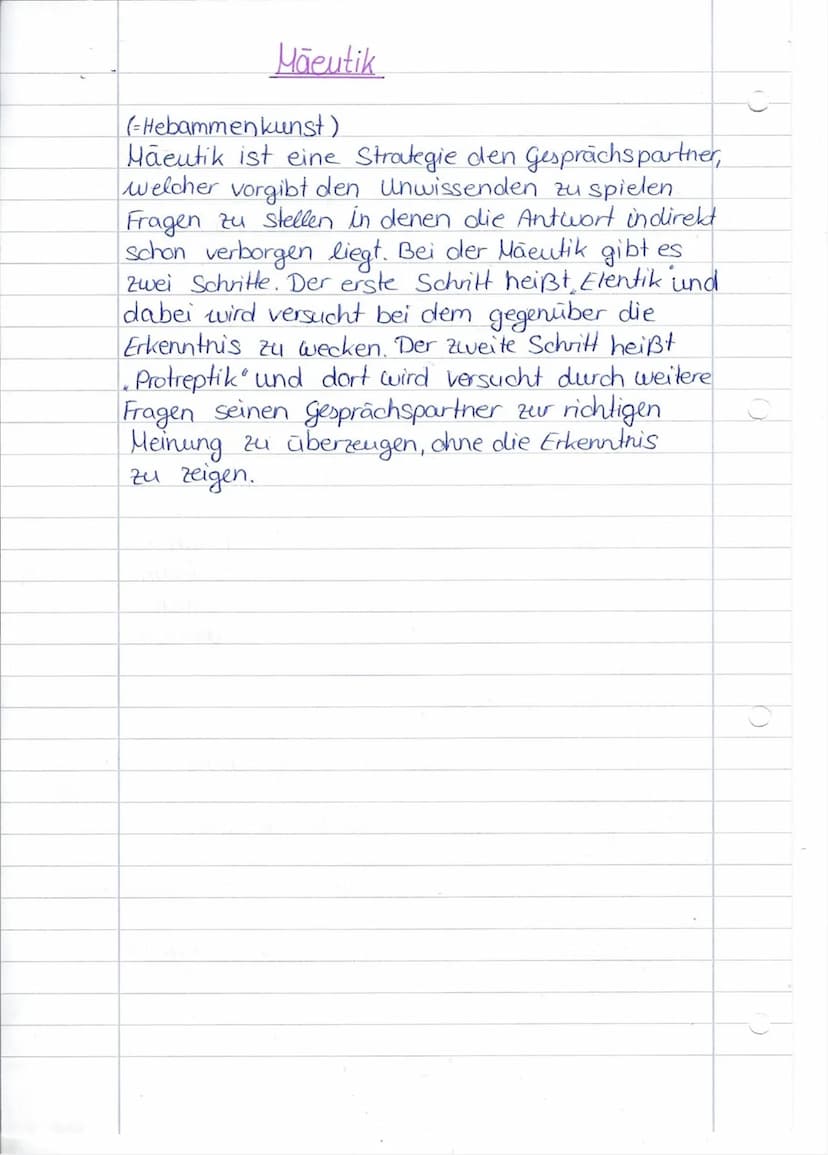 Mäeutik
(=Hebammenkunst)
Mäeutik ist eine Strategie den Gesprächspartner,
welcher vorgibt den Unwissenden zu spielen
Fragen zu stellen in denen die Antwort indirekt
schon verborgen liegt. Bei der Mäeutik gibt es
zwei Schritte. Der erste Schritt heißt „Elentik" und
dabei wird versucht bei dem gegenüber die
Erkenntnis zu wecken. Der zweite Schritt heißt
„Protreptik" und dort wird versucht durch weitere
Fragen seinen Gesprächspartner zur richtigen
Meinung zu überzeugen, ohne die Erkenntnis
zu zeigen.